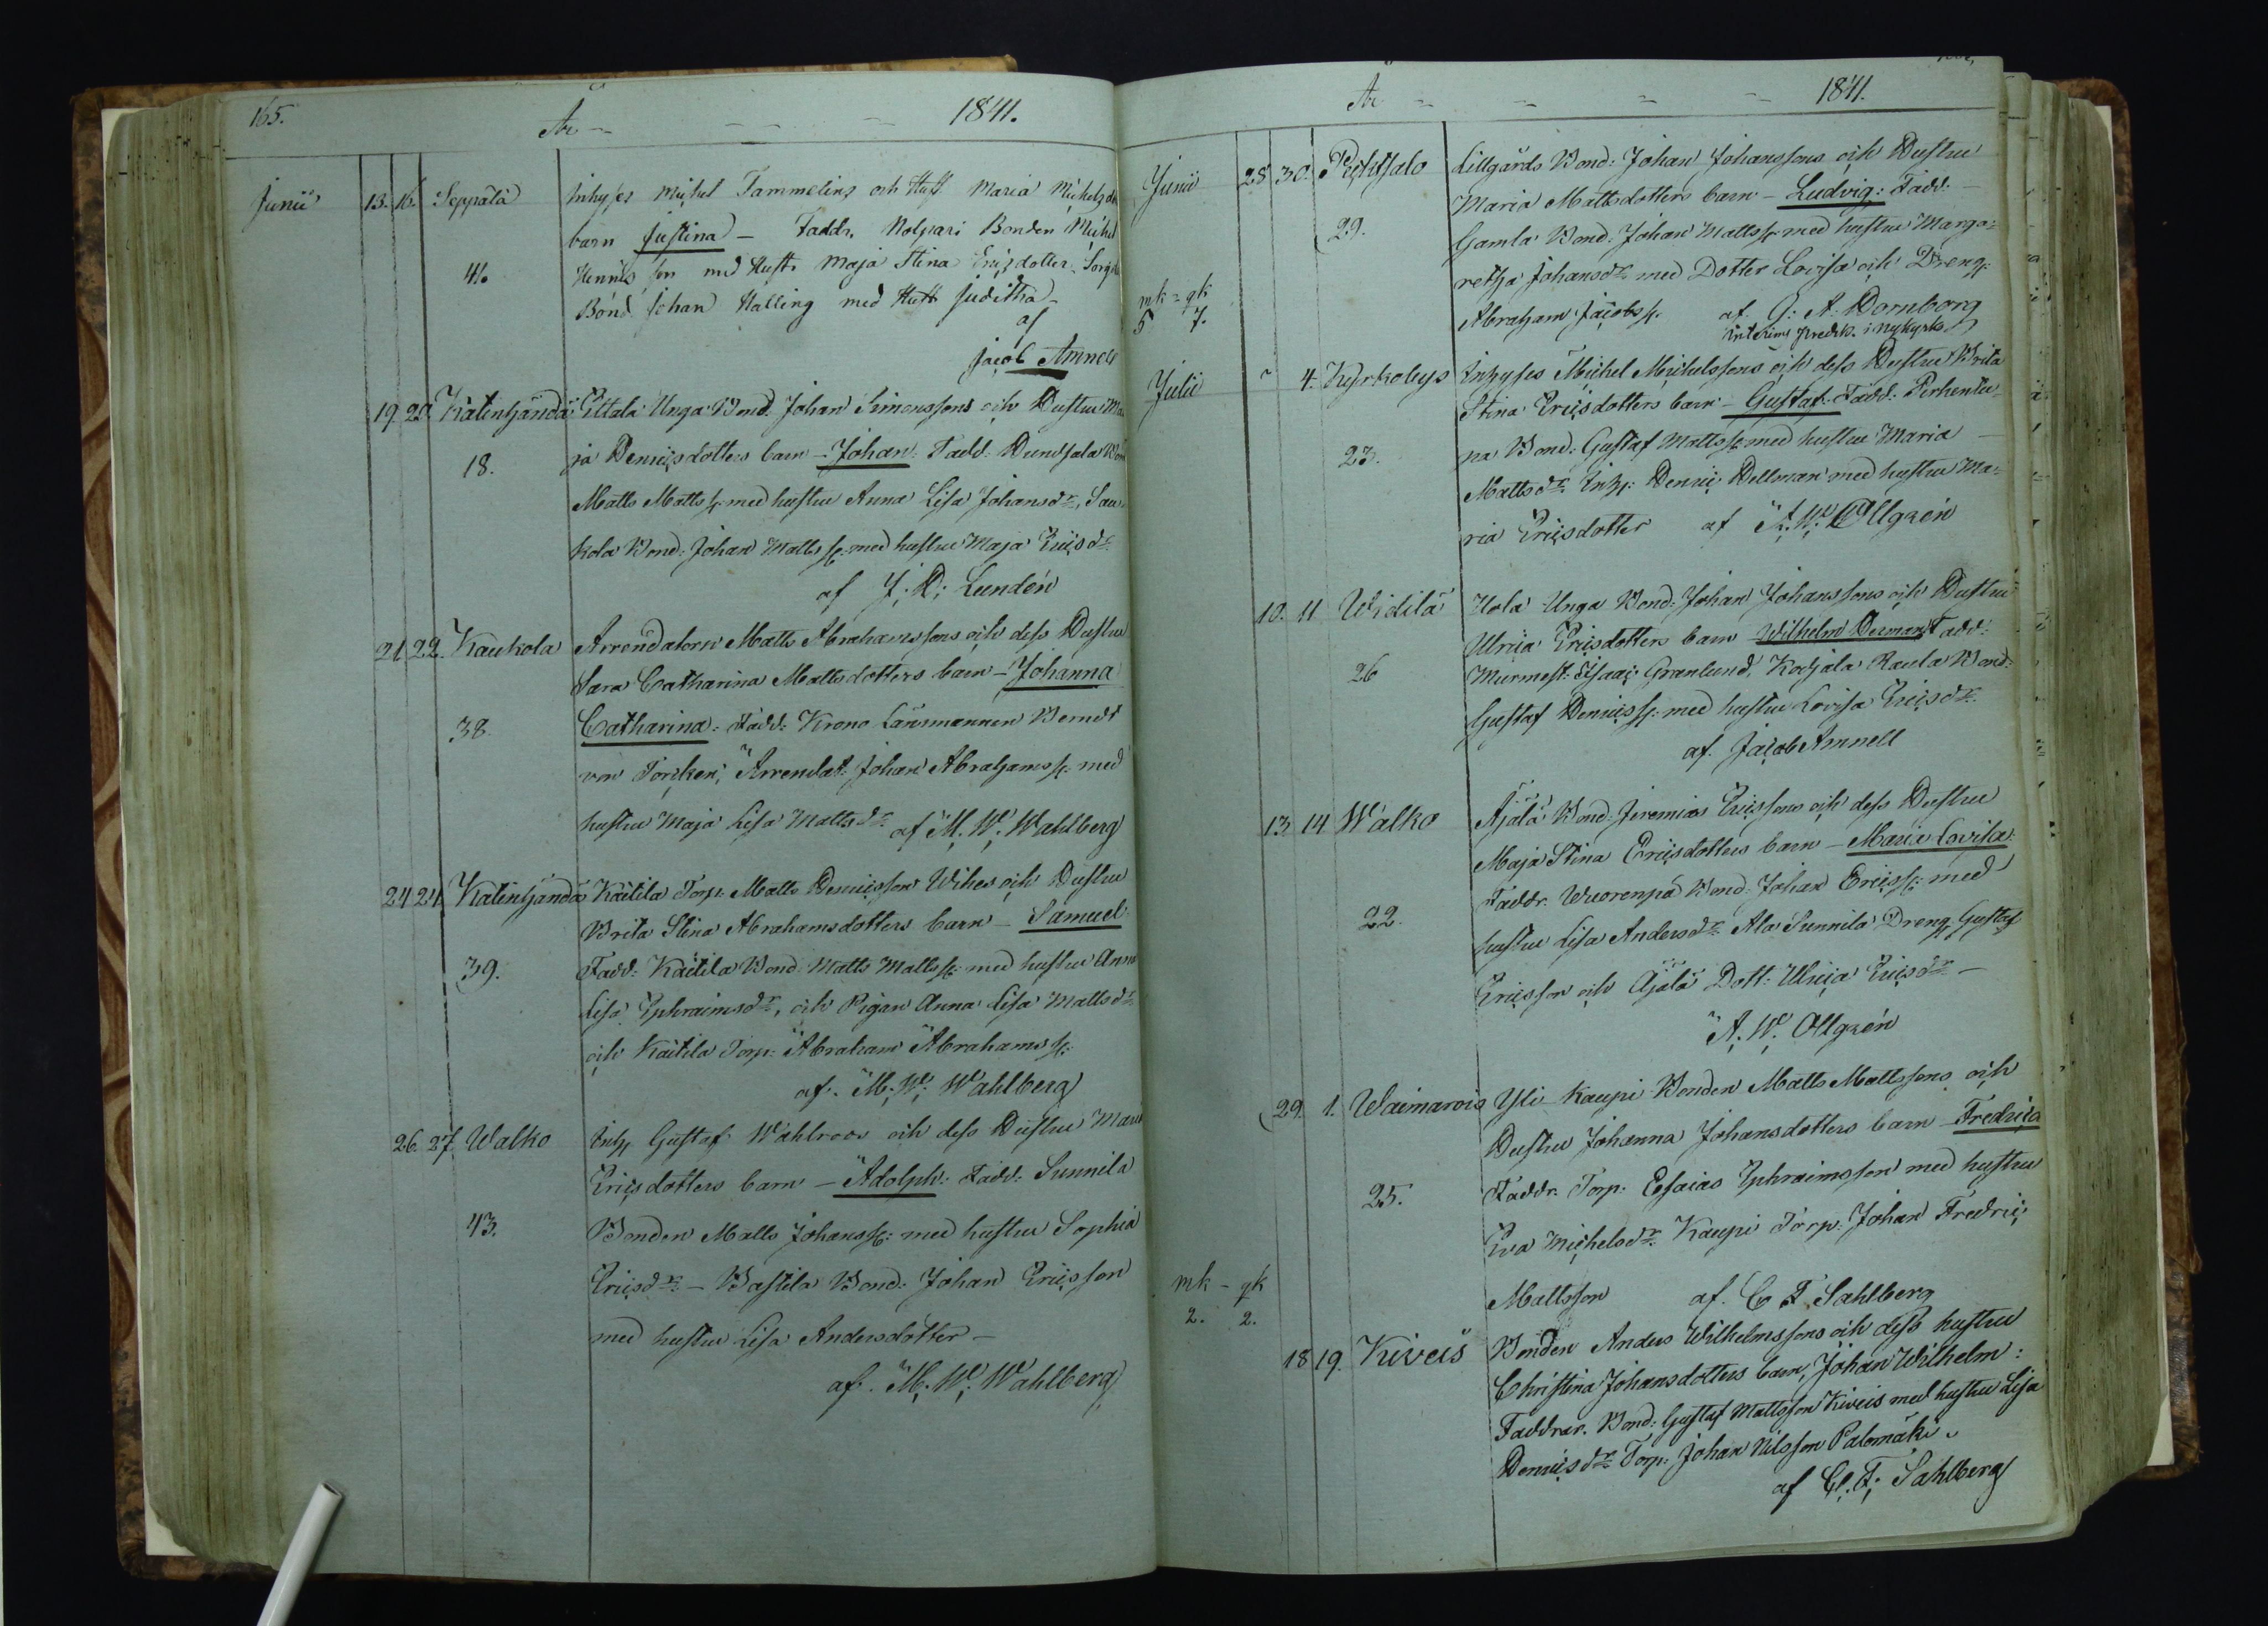 165.
År - - - - 1841.
Junii 13. 16. Seppälä Inhyses Michel Tammelins och Hust Maria Michelsdr
barn Justina - Faddr. Nolpari Bonden Michel
41. Henriksson med Hust. Maja Stina Ericsdotter
Bond Johan Halling med Hust Juditha -
af
Jacob Amnell
19. 20. Katinhändä Ettala Unga Bond. Johan Simonssons och Hustru Ma
ja Henricsdotters barn - Johan: Fadd: Hundsala Bond
18.
Matts Mattss. med hustru Anna Lisa Johansdr, Sau
kola Bond: Johan Mattss. med hustru Maja Ericsdr
af J: H: Lundén
21 22. Kaukola Arrendatorn Matts Abrahamssons och dess Hustru
Sara Catharina Mattsdotters barn - Johanna
38. Catharina: Fadd: Krono Länsmannen Berndt
von Törcken, Arrendat: Johan Abrahamss. med
hustru Maja Lisa Mattsdr af M. W. Wahlberg
24 24 Katinhändä Käitila Torp: Matts Henricssons Wihes och Hustru
Brita Stina Abrahamsdotters barn - Samuel
39. Fadd: Käitila Bond Matts Mattss. med hustru Anna
Lisa Ephraimsdr, och Pigan Anna Lisa Mattsdr
och Käitila Torp: Abraham Abrahamss.
af. M. W. Wahlberg
26. 27. Walko Inh Gustaf Wahlroos och dess Hustru Maria
Ericsdotters barn - Adolph: Fadd: Sunnila
43. Bonden Matts Johanss. med hustru Sophia
Ericsdr - Bastila Bond: Johan Ericsson
med hustru Lisa Andersdotter -
af. M. W. Wahlberg
År - - - - 1841.
Junii 28 30. Pyhtsalo Lillgårds Bond: Johan Johanssons och Hustru
Maria Mattsdotters barn - Ludvig: Fadd. -
29. Gamla Bond. Johan Mattss. med hustru Marga=
retha Johansdr med Dotter Lovisa och Dreng.
mk = qk
5 7. Abraham Jacobss. af. G: A: Bornborg
Interims Predik. i Nykyrko
Julii 2 4. Kyrkobys Inhyses Michel Michelssons och dess Hustru Brita
Stina Ericsdotters barn - Gustaf. Fadd: Pirhentu=
23. na Bond: Gustaf Mattss. med hustru Maria -
Mattsdr. Inh: Henric Hellman med hustru Ma=
ria Ericsdotter af A. W. Ollgrén
10. 11 Widilä Uola Unga Bond: Johan Johanssons och Hustru
Ulrica Ericsdotters barn Wilhelm Herman Fadd:
26 Murmest: Isaac Granlund, Kodjala Raula Bond:
Gustaf Henricss. med hustru Lovisa Ericsdr
af. Jacob Amnell
13 14 Walko Äjälä Bond: Jeremias Ericssons och dess Hustru
Maja Stina Ericsdotters barn - Maria Lovisa:
Faddr. Wuorenpä Bond: Johan Ericss. med
22. hustru Lisa Andersdr. Ala Sunnila Dreng Gustaf
Ericsson och Äjälä Dott: Ulrica Ericsdr -
A. W. Ollgrén
29. 1. Waimarois Yli Kaupi Bonden Matts Mattssons och
Hustru Johanna Johansdotters barn Fredrica
25. Faddr. Torp: Esaias Ephraimsson med hustru
Eva Michelsdr. Kaupi Torp: Johan Fredric
mk - qk
2. 2. Mattsson af. C F Sahlberg
18 19. Kiveis Bonden Anders Wilhelmssons och dess hustru
Christina Johansdotters barn, Johan Wilhelm:
Faddrar. Bond: Gustaf Mattsson Kiveis med hustru Lisa
Henricsdr Torp: Johan Nilsson Palomäki.
af C. F. Sahlberg